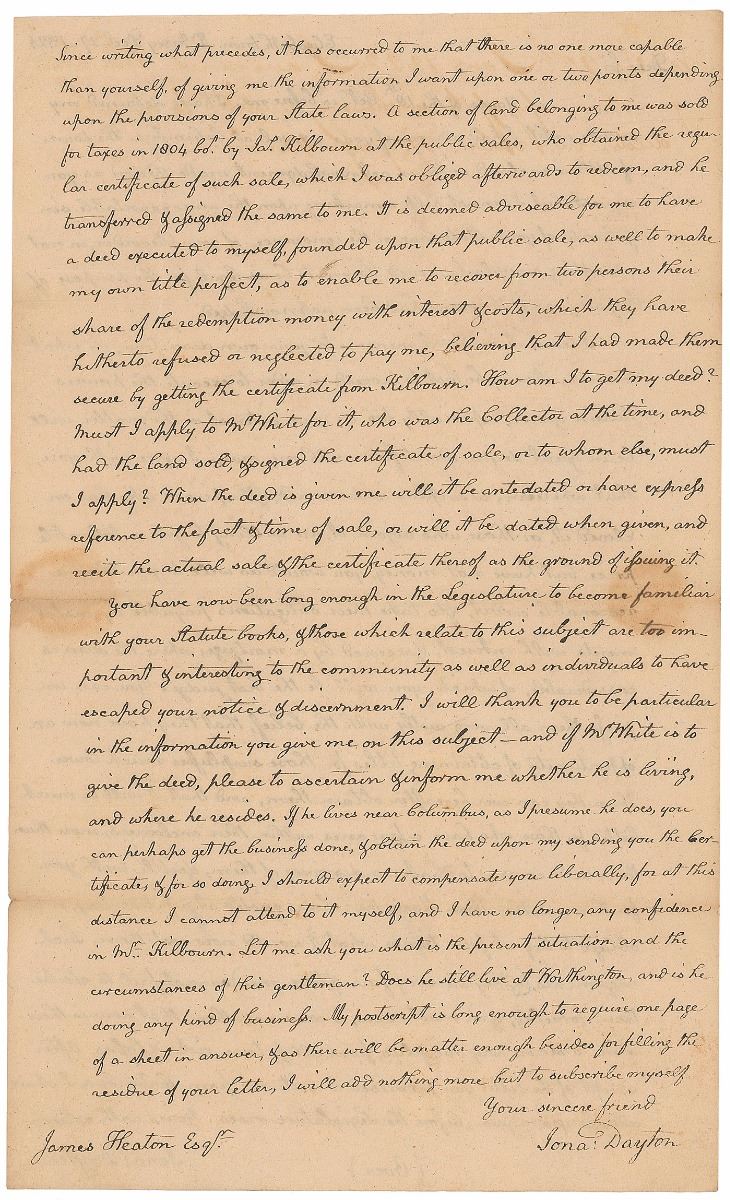 Since writing what precedes, it has occurred to me that there is no one more capable
than yourself, of giving me the information I want upon one or two points depending
upon the provisions of your State laws. A section of land belonging to me was sold
for taxes in 1804 bot. by Jas. Kilbourn at the public sales, who obtained the regu-
lar certificate of such sale, which I was obliged afterwards to redeem, and he
transferred & assigned the same to me. It is deemed adviseable for me to have
a deed executed to myself, founded upon that public sale, as well to make
my own title perfect, as to enable me to recover from two persons their
share of the redemption money with interest & costs, which they have
hitherto refused or neglected to pay me, believing that I had made them
secure by getting the certificate from Kilbourn. How am I to get my deed?
Must I apply to Mr White for it, who was the Collector at the time, and
had the land sold, & signed the certificate of sale, or to whom else, must
I apply? When the deed is given me will it be antedated or have express
reference to the fact & time of sale, or will it be dated when given, and
recite the actual sale & the certificate thereof as the ground of issuing it.
You have now been long enough in the Legislature to become familiar
with your Statute books, & those which relate to this subject are too im-
portant & interesting to the community as well as individuals to have
escaped your notice & discernment. I will thank you to be particular
in the information you give me on this subject — and if Mr White is to
give the deed, please to ascertain & inform me whether he is living,
and where he resides. If he lives near Columbus, as I presume he does, you
can perhaps get the business done, & obtain the deed upon my sending you the Cer-
tificate, & for so doing I should expect to compensate you liberally, for at this
distance I cannot attend to it myself, and I have no longer, any confidence
in Mr. Kilbourn. Let me ask you what is the present situation and the
circumstances of this gentleman? Does he still live at Worthington, and is he
doing any kind of business. My postscript is long enough to require one page
of a sheet in answer, & as there will be matter enough besides for filling the
residue of your letter, I will add nothing more but to subscribe myself
Your sincere friend
James Heaton Esqr. Jona: Dayton